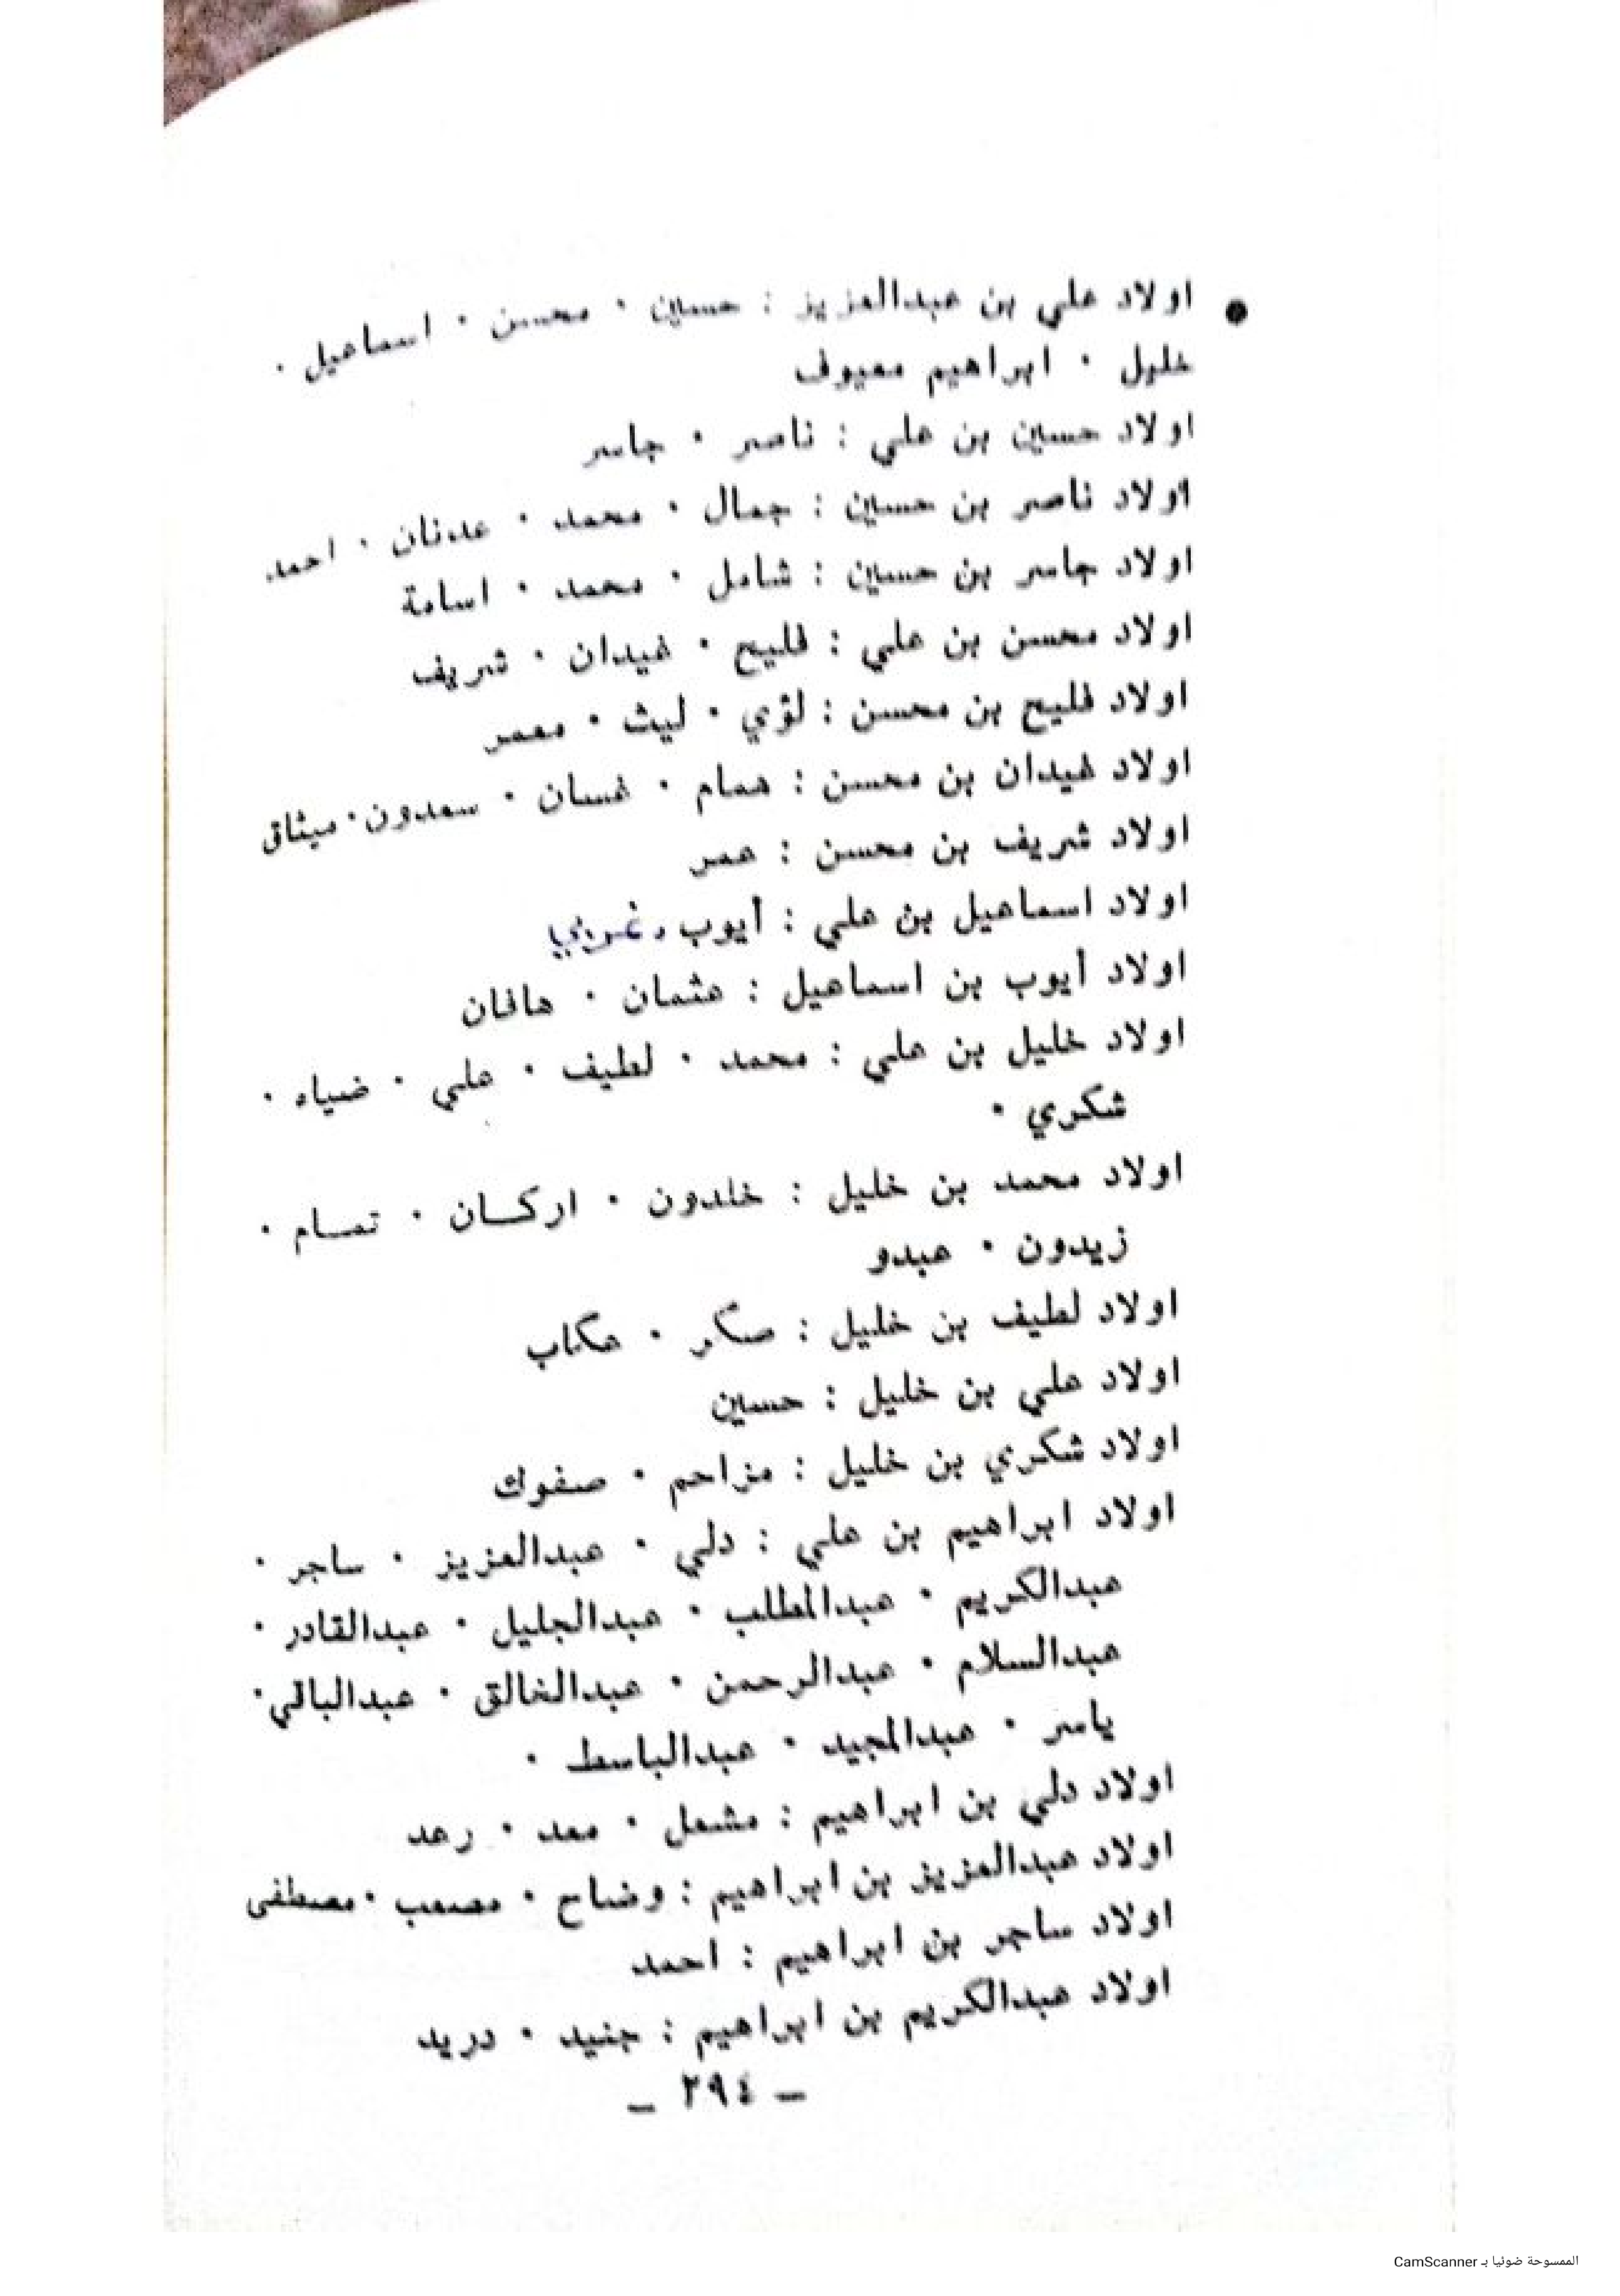 ● اولاد علي بن عبدالعزيز : حسين · محسن · اسماعيل ·
خليل · ابراهيم معيوف
اولاد حسين بن علي : ناصر · جاسر
اولاد ناصر بن حسين : جمال · محمد · عدنان · احمد
اولاد جاسر بن حسين : شامل · محمد · اسامة
اولاد محسن بن علي : فليح · غيدان · شريف
اولاد فليح بن محسن : لؤي · ليث · معمر
اولاد غيدان بن محسن : همام · غسان · سعدون · ميثاق
اولاد شريف بن محسن : عمر
اولاد اسماعيل بن علي : أيوب ، غربي
اولاد أيوب بن اسماعيل : عثمان · هافان
اولاد خليل بن علي : محمد · لطيف · علي · ضياء ·
شكري ·
اولاد محمد بن خليل : خلدون · اركـان · تمـام ·
زيدون · عبدو
اولاد لطيف بن خليل : صگر · عگاب
اولاد علي بن خليل : حسين
اولاد شكري بن خليل : مزاحم · صفوك
اولاد ابراهيم بن علي : دلي · عبدالعزيز · ساجر ·
عبدالكريم · عبدالمطلب · عبدالجليل · عبدالقادر ·
عبدالسلام · عبدالرحمن · عبدالخالق · عبدالباقي ·
ياسر · عبدالمجيد · عبدالباسط ·
اولاد دلي بن ابراهيم : مشعل · معد · رعد
اولاد عبدالعزيز بن ابراهيم : وضاح · مصعب · مصطفى
اولاد ساجر بن ابراهيم : احمد
اولاد عبدالكريم بن ابراهيم : جنيد · دريد
– ٢٩٤ –
الممسوحة ضوئيا بـ CamScanner